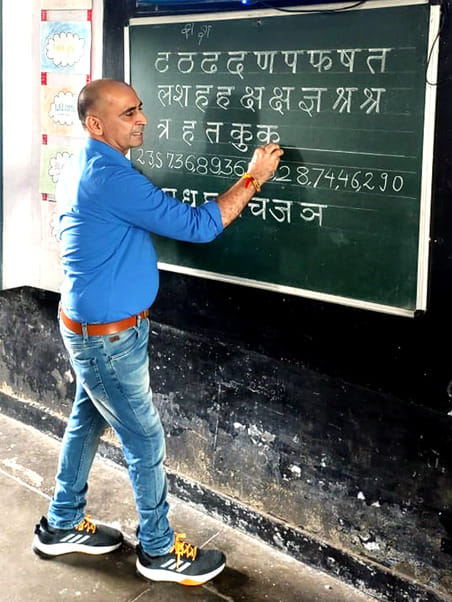 क्ष ज्ञ
ट ठ ढ द ण प फ ष त
ल श ह ह क्ष क्ष ज्ञ श्र श्र
त्र ह त कु क
235736,8936 28,74,46,290
च ज ञ